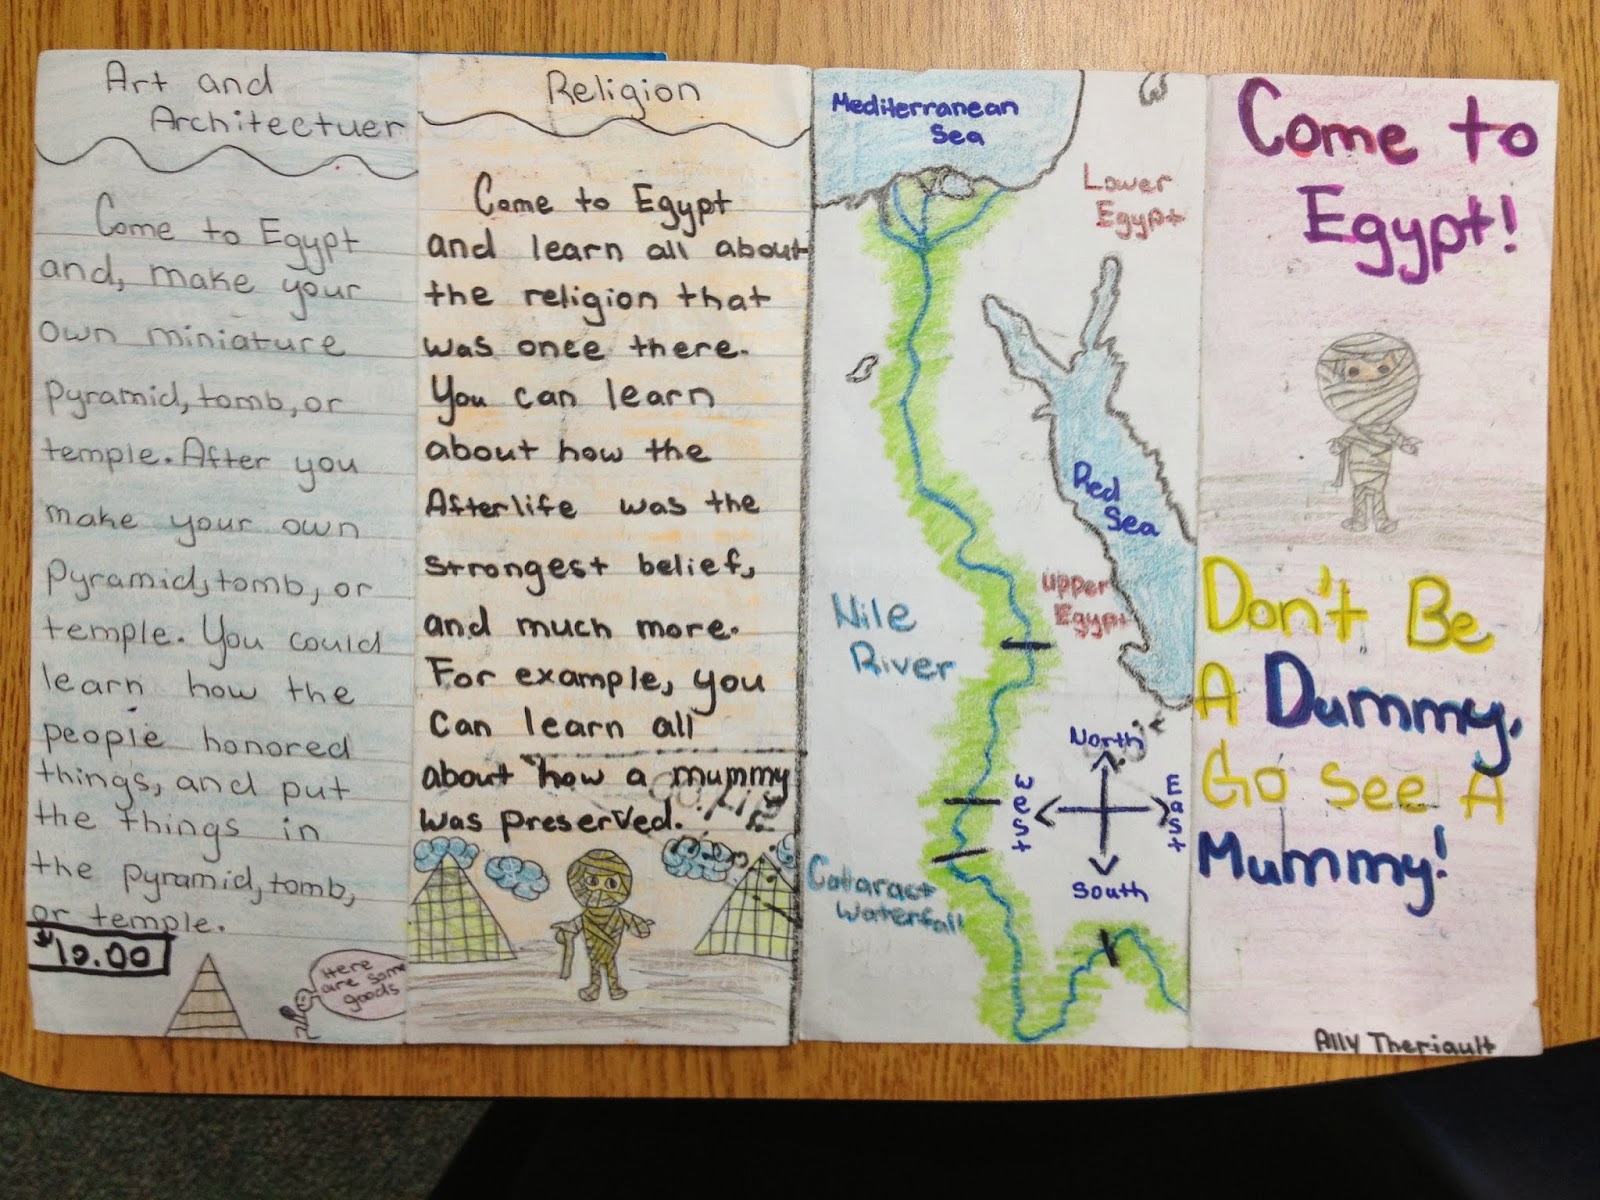 Art and
Architectuer
Come to Egypt
and, make your
own miniature
pyramid, tomb, or
temple. After you
make your own
pyramid, tomb, or
temple. You could
learn how the
people honored
things, and put
the things in
the pyramid, tomb,
or temple.
$10.00
Here
are some
goods
Religion
Come to Egypt
and learn all about
the religion that
was once there.
You can learn
about how the
Afterlife was the
strongest belief,
and much more.
For example, you
can learn all
about how a mummy
was preserved.
Mediterranean
Sea
Lower
Egypt
Red
Sea
upper
Egypt
Nile
River
North
West
East
South
Cataract
Waterfall
Come to
Egypt!
Don't Be
A Dummy,
Go see A
Mummy!
Ally Theriault